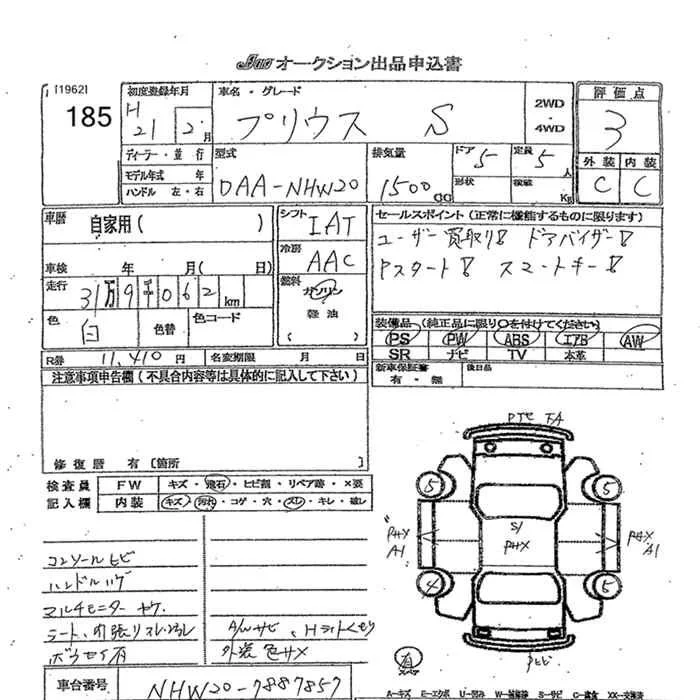 JAA オークション出品申込書
[1962]
185
初度登録年月
H 21 2 月
車名・グレード
プリウス S
2WD
・
4WD
評価点
3
外装 内装
C C
ディーラー・並行
モデル年式 年
ハンドル 左・右
型式
DAA-NHW20
排気量
1500 CC
ドア 5
形状
定員 5 人
積載 Kg
車歴
自家用( )
シフト
IAT
冷房
AAC
燃料
ガソリン
・
軽油
( )
車検 年 月( 日)
走行
31万9千062 km
色
白
色替
色コード
R券 11,410 円
名変期限 月 日
セールスポイント(正常に機能するものに限ります)
ユーザー買取り! ドアバイザー!
Pスタート! スマートキー!
装備品(純正品に限り○を付けてください)
PS PW ABS エアB AW
SR ナビ TV 本革
新車保証書
有・無
後日品
注意事項申告欄(不具合内容等は具体的に記入して下さい)
修復歴 有 〔箇所 〕
検査員
記入欄
FW キズ・飛石・ヒビ割・リペア跡・×要
内装 キズ・汚れ・コゲ・穴・スレ・キレ・破レ
コンソールヒビ
ハンドルハゲ
マルチモニターヤケ
シート、内張りスレ・ヨゴレ
A/Wサビ、Hライトくもり
外装色サメ
5 5
S/
PHX
PHX
A1
PHX
A1
4 5
有
車台番号
NHW20-7887857
A-キズ E-エクボ U-凹み W-補修跡 S-サビ C-腐食 XX-交換済